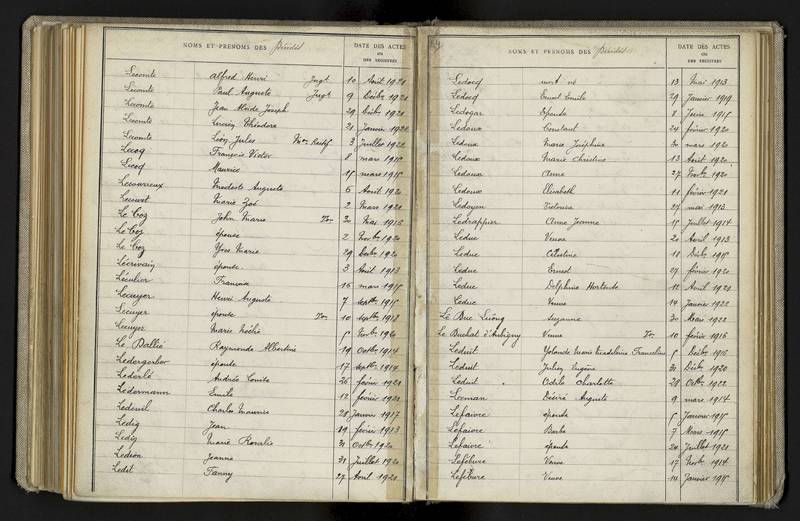 NOMS ET PRENOMS DES Décédés
DATE DES ACTES
OU
DES REGISTRES
Lecomte Alfred Henri Jugt 10 Août 1921
Lecomte Paul Auguste Jugt 9 Décbre 1921
Lecomte Jean Joseph 29 Décbre 1921
Lecomte Théodore 21 Janvier 1922
Lecomte Léon Jules 3 Juillet 1922
Lecoq François Victor 8 mars 1915
Lecoq Maurice 15 mars 1915
Lecouvreux Modeste Auguste 6 Avril 1920
Marie Zoé 2 Mars 1920
Le Coz John Marie Ton 30 Mai 1915
Le Coz épouse 2 Novbre 1920
Le Coz Yves Marie 29 Décbre 1920
Lécrivain épouse 3 Août 1913
Lécolier François 16 mars 1915
Lecuyer Henri Auguste 7 Septbre 1915
Lecuyer épouse Ton 10 Septbre 1918
Lecuyer Marie 5 Novbre 1920
Le Dallié Raymonde Albertine 19 Octbre 1914
Ledergerber épouse 17 Septbre 1914
Lederlé Andrée Louise 26 février 1921
Ledermann Emile 12 février 1921
Ledeuil Charles Maurice 28 Janvier 1917
Ledig Jean 19 février 1913
Ledig Marie Rosalie 31 Octbre 1920
Ledion Jeanne 31 Juillet 1920
Ledit Fanny 27 Avril 1920
NOMS ET PRENOMS DES Décédés
DATE DES ACTES
OU
DES REGISTRES
Ledocq mort né 13 Mai 1913
Ledocq Ernest Emile 29 Janvier 1919
Ledogar épouse 8 Juin 1915
Ledoux Constant 24 février 1920
Ledoux Marie Joséphine 30 mars 1920
Ledoux Marie Christine 13 Août 1920
Ledoux Anne 27 Novbre 1920
Ledoux Elisabeth 11 février 1921
Ledoyen Victoire 27 mai 1913
Ledrappier Anne Jeanne 15 Juillet 1914
Leduc Veuve 20 Avril 1913
Leduc Célestine 18 Décbre 1915
Leduc Ernest 27 février 1920
Leduc Delphine Hortense 12 Avril 1920
Leduc Veuve 14 Janvier 1922
Lê Duc Luông Suzanne 30 Mars 1922
Le Duchat d'Aubigny Veuve Ton 10 février 1916
Leduit Yolande Marie Madeleine Franceline 5 Décbre 1916
Leduit Julien Eugène 31 Décbre 1920
Leduit Odile Charlotte 28 Octbre 1922
Leeman Désiré Auguste 9 mars 1914
Lefaivre épouse 5 Janvier 1915
Lefaivre Barbe 7 Mars 1915
Lefaivre épouse 24 Juillet 1921
Lefébure Veuve 17 Novbre 1914
Lefébure Veuve 14 Janvier 1915